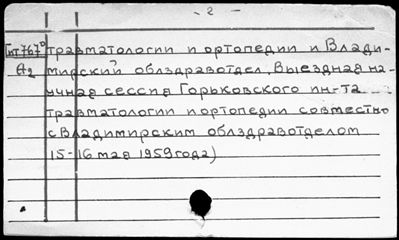 - 2 -
Гит 767° травматологии и ортопедии и Влади-
A2 мирский облздравотдел. Выездная на-
учная сессия Горьковского ин-та
травматологии и ортопедии совместно
с Владимирским облздравотделом
15-16 мая 1959 года)